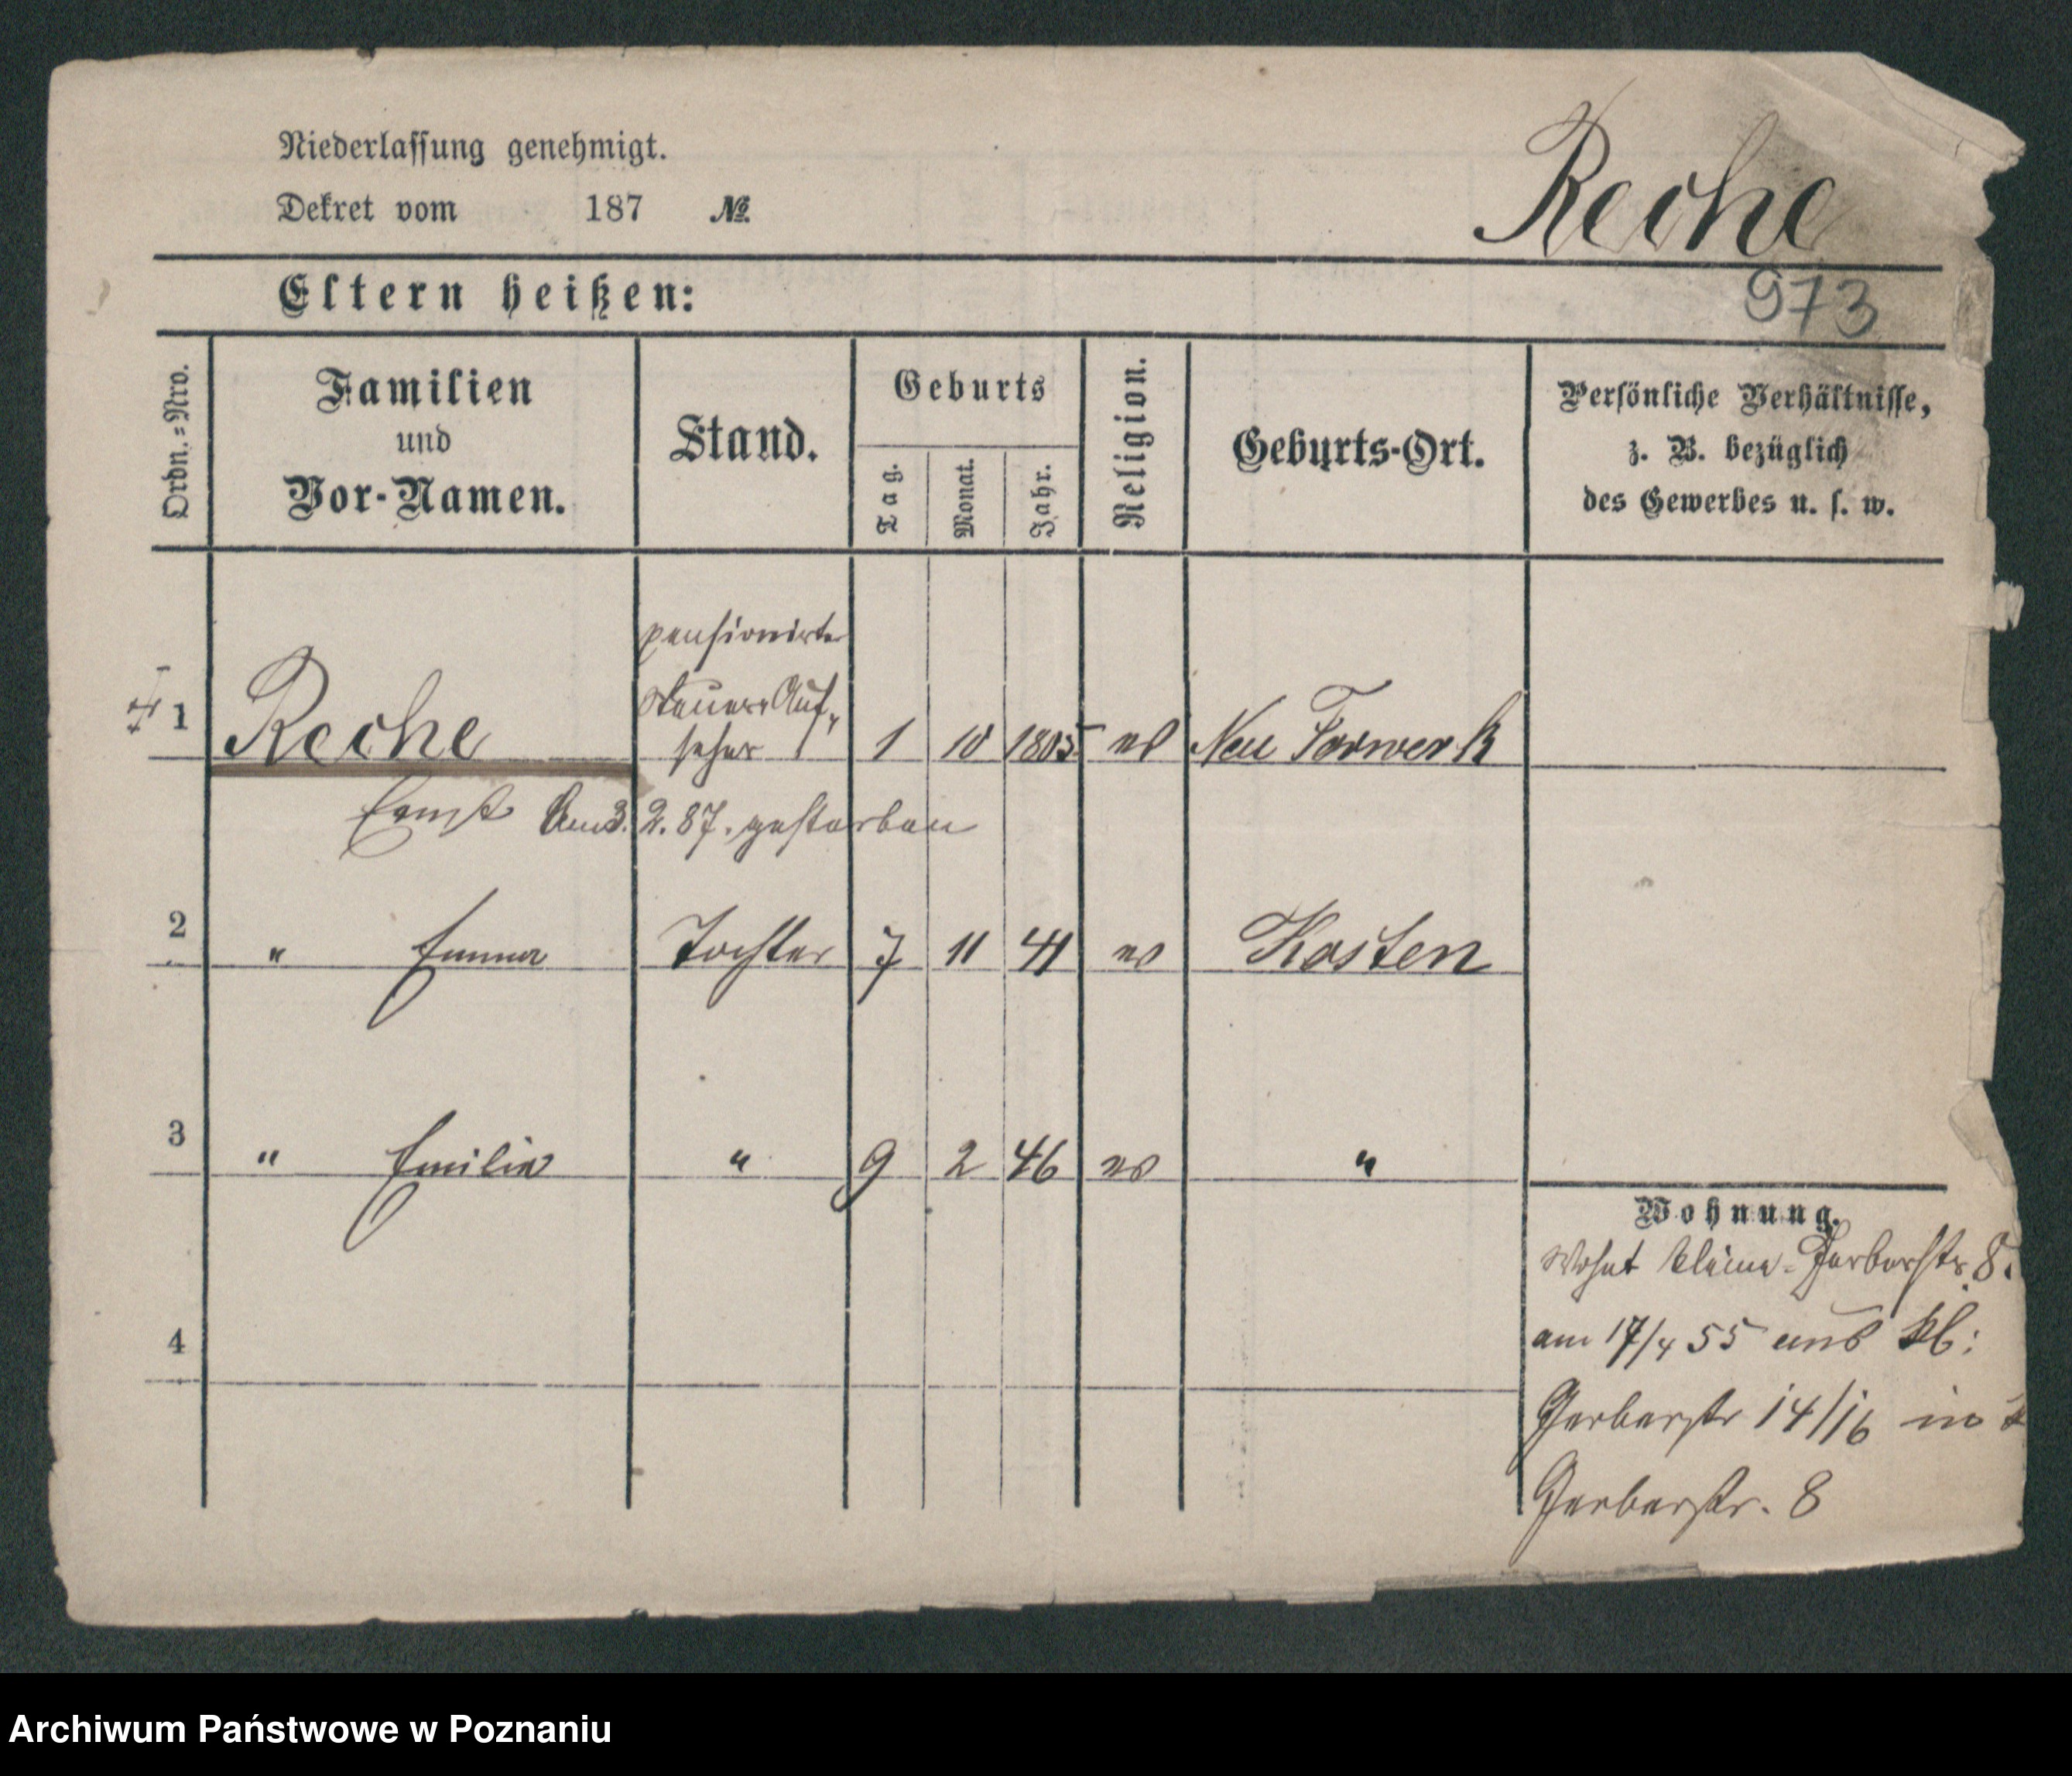 Niederlassung genehmigt.
Dekret vom 187 №
Reche
973
Eltern heißen:
Ordn.-Nro.
Familien
und
Vor-Namen.
Stand.
Geburts
Tag.
Monat.
Jahr.
Religion.
Geburts-Ort.
Persönliche Verhältnisse,
z. B. bezüglich
des Gewerbes u. s. w.
1 Reche pensionirter Steuer-Aufseher 1 10 1805 ev Neu Vorwerk
Ernst Am 3. 2. 87. gestorben
2 " Emma Tochter 7 11 41 ev Kosten
3 " Emilie " 9 2 46 ev "
4
Wohnung.
Wohnt kleine-Gerberstr 8.
am 17/4 55 und kl:
Gerberstr 14/16 in
Gerberstr. 8
Archiwum Państwowe w Poznaniu